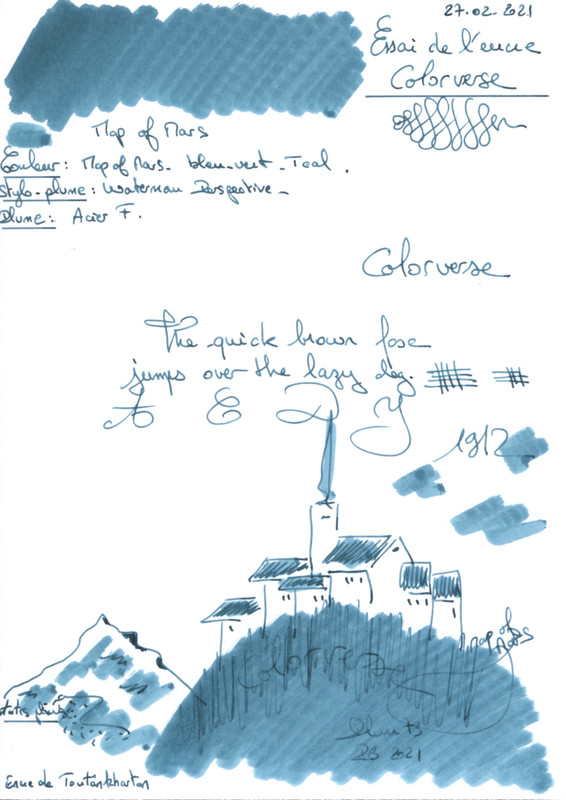 27.02.2021
Essai de l'encre
Colorverse
Map of Mars
Couleur : Map of Mars - bleu-vert - Teal .
Stylo-plume : Waterman Perspective -
Plume : Acier F.
Colorverse
The quick brown foxe
jumps over the lazy dog.
A E D Y
1912
Map of
Mars
Colorverse
2021
Encre de Toutankharton